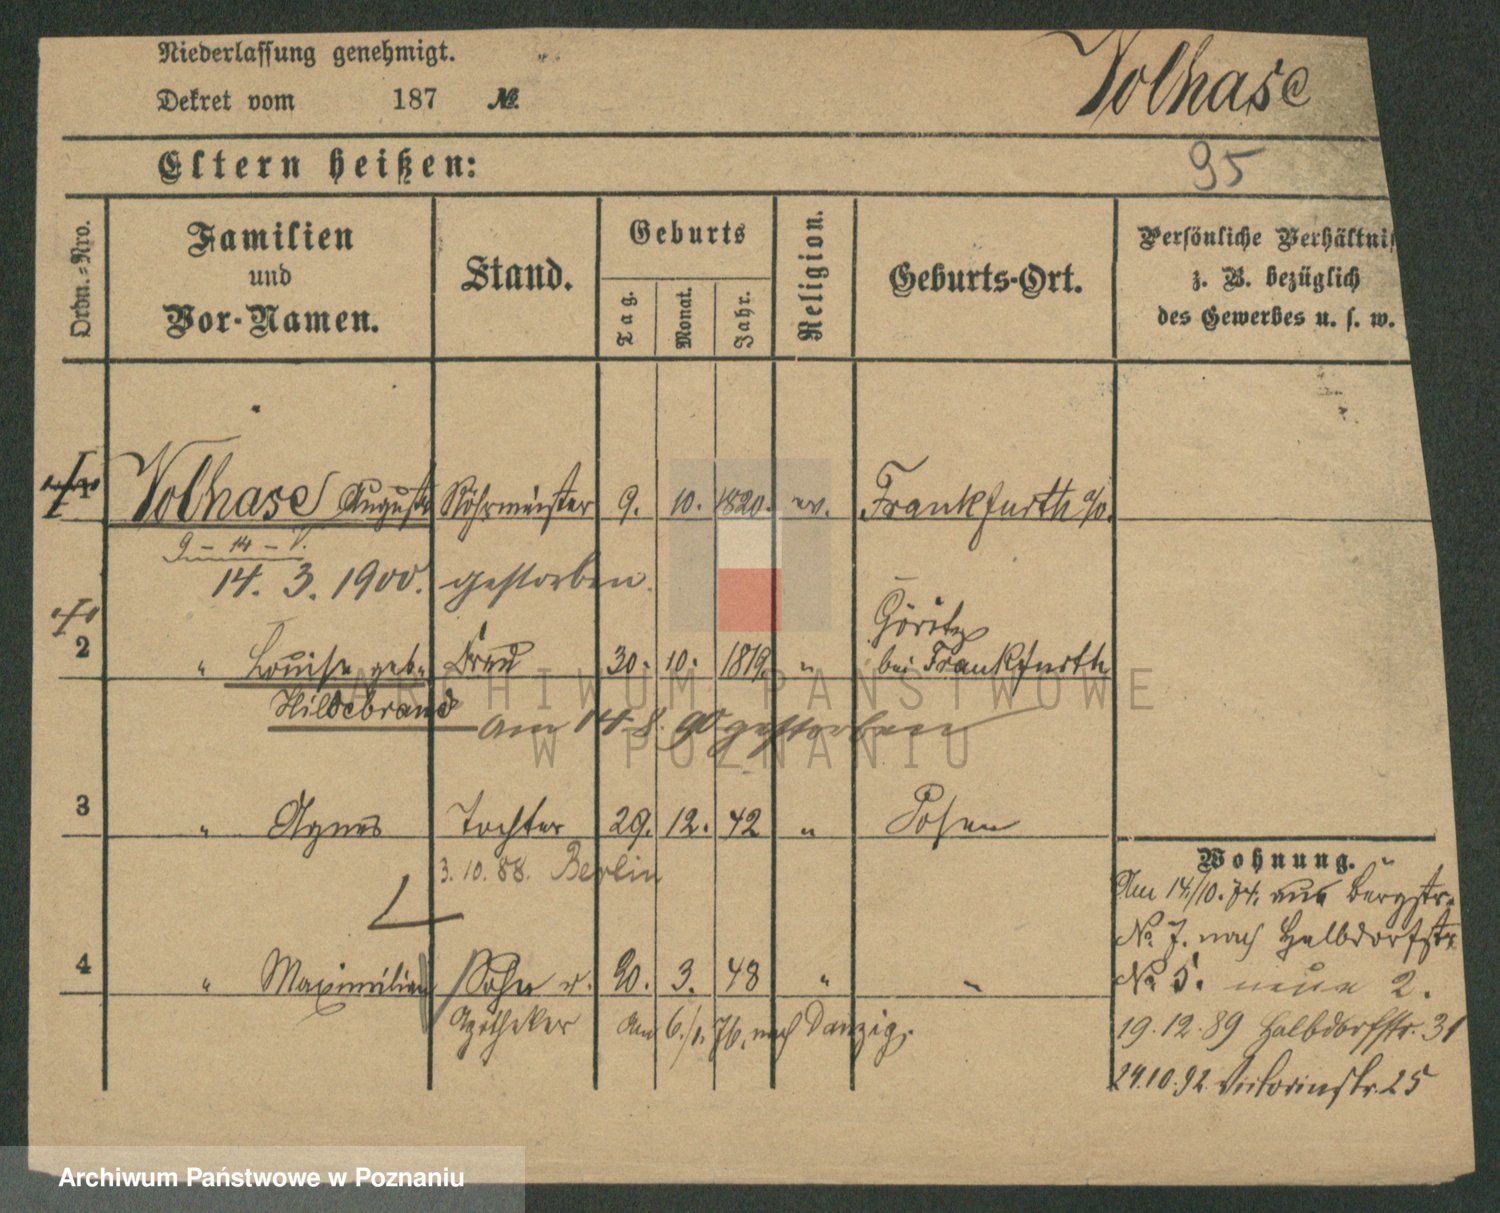 Niederlassung genehmigt.
Dekret vom 187 №
Volhase
Eltern heißen:
95
Ordn.-Nro.
Familien und Vor-Namen.
Stand.
Geburts
Tag.
Monat.
Jahr.
Religion.
Geburts-Ort.
Persönliche Verhältnis
z. B. bezüglich
des Gewerbes u. s. w.
1 Volhase August Röhrmeister 9. 10. 1820. ev. Frankfurth a/o.
14. 3. 1900. gestorben.
Göritz
2 " Louise geb. Frau 30. 10. 1819. " bei Frankfurth
Hildebrand am 14. 8. 90 gestorben
3 " Agnes Tochter 29. 12. 42 " Posen
3. 10. 88. Berlin
4 " Maximilian Sohn u. 20. 3. 48 " "
Apotheker am 6./1. 76. nach Danzig.
Wohnung.
Am 14/10. 74. aus Bergstr.
No 7. nach Halbdorfstr
No 5. neue 2.
19.12.89 Halbdorfstr. 31
24.10.92. Victoriastr. 25
ARCHIWUM PAŃSTWOWE
W POZNANIU
Archiwum Państwowe w Poznaniu